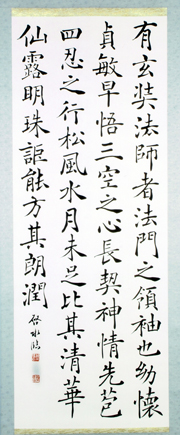 有玄奘法師者法門之領袖也幼懷
貞敏早悟三空之心長契神情先苞
四忍之行松風水月未足比其清華
仙露明珠詎能方其朗潤